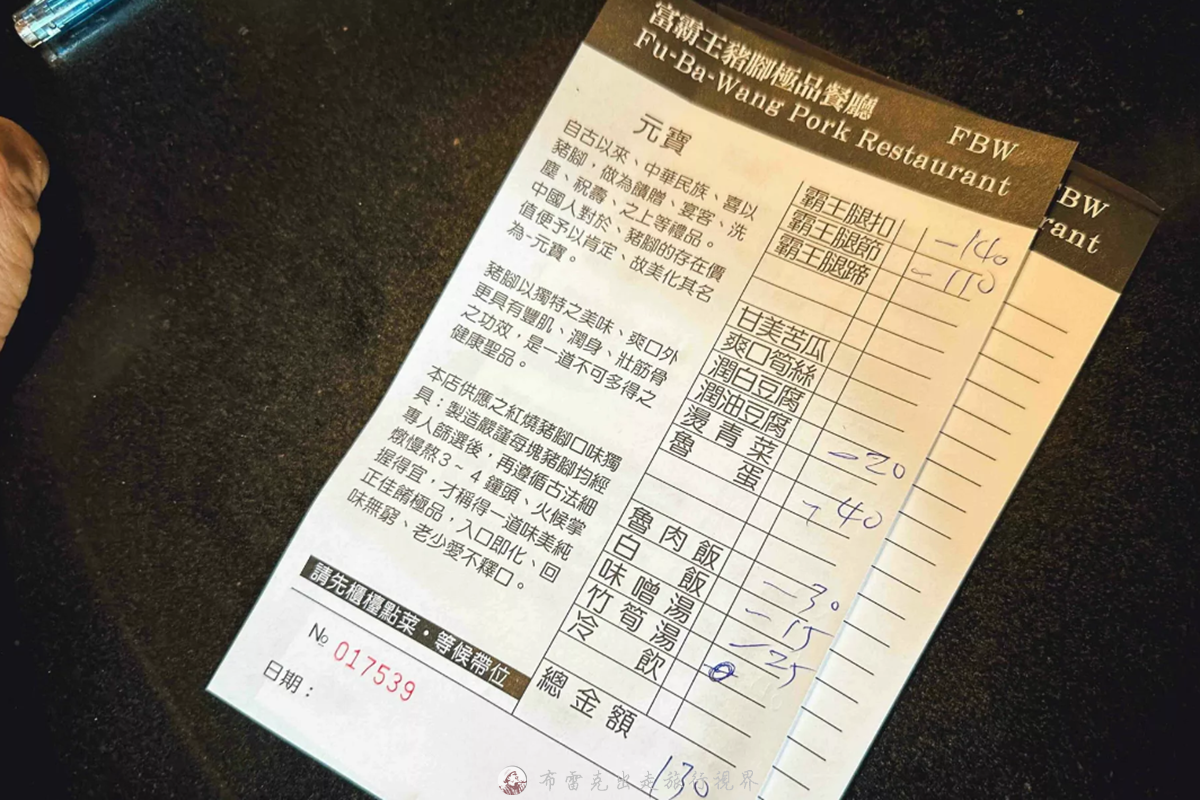 富霸王豬腳極品餐廳
Fu-Ba-Wang Pork Restaurant
FBW
元寶
自古以來、中華民族、喜以
豬腳，做為饋贈、宴客、洗
塵、祝壽、之上等禮品。
中國人對於、豬腳的存在價
值便予以肯定、故美化其名
為-元寶。
豬腳以獨特之美味、爽口外
更具有豐肌、潤身、壯筋骨
之功效，是一道不可多得之
健康聖品。
本店供應之紅燒豬腳口味獨
具：製造嚴謹每塊豬腳均經
專人師選後，再遵循古法細
燉慢熬3～4鐘頭、火候掌
握得宜，才稱得一道味美純
正佳餚極品，入口即化、回
味無窮、老少愛不釋口。
請先櫃檯點菜・等候帶位
№ 017539
日期：
霸王腿扣 -140
霸王腿節 -110
霸王腿蹄
甘美苦瓜
爽口筍絲
潤白豆腐
潤油豆腐
燙青菜 -20
魯蛋 -40
魯肉飯
白飯 -30
味噌湯 -15
竹筍湯 -25
冷飲
總金額
130
BW
rant
布雷克出走旅行視界